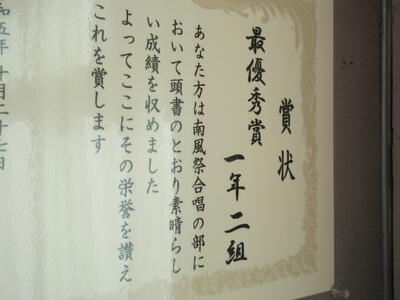 賞状
最優秀賞
一年二組
あなた方は南風祭合唱の部に
おいて頭書のとおり素晴らし
い成績を収めました
よってここにその栄誉を讃え
これを賞します
和五年 十月二十七日